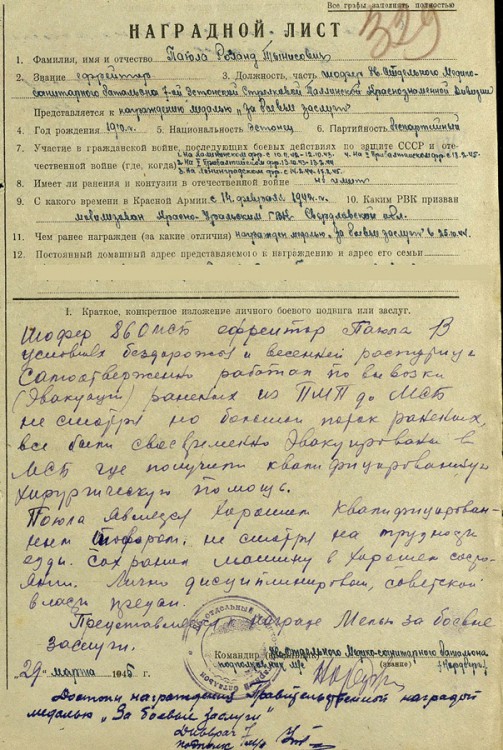 Все графы заполнить полностью
329
НАГРАДНОЙ ЛИСТ
1. Фамилия, имя и отчество Паюла Роланд Тынисович
2. Звание ефрейтор 3. Должность, часть шофер Отдельного Медико-
санитарного батальона 7-ой Эстонской Стрелковой Таллинской Краснознаменной Дивизии
Представляется к награждению медалью „За боевые заслуги"
4. Год рождения 1910 г. 5. Национальность Эстонец 6. Партийность беспартийный
7. Участие в гражданской войне, последующих боевых действиях по защите СССР и оте-
чественной войне (где, когда) 1. На Калининском фр. с 10.11.42-12.10.43. 4. На Прибалтийском фр. с 18.2.45.
2. На Прибалтийском фр. 13.10.43-13.2.44.
3. На Ленинградском фр. с 14.2.44.-17.2.45.
8. Имеет ли ранения и контузии в отечественной войне не имеет
9. С какого времени в Красной Армии с 14. февраля 1942 г. 10. Каким РВК призван
мобилизован Красно-Уральским ГВК Свердловской обл.
11. Чем ранее награжден (за какие отличия) награжден медалью „за боевые заслуги" 25.10.44.
12. Постоянный домашний адрес представляемого к награждению и адрес его семьи
I. Краткое, конкретное изложение личного боевого подвига или заслуг.
Шофер 86 ОМСБ ефрейтор Паюла в
условиях бездорожья и весенней распутицы
самоотверженно работал по вывозки
(эвакуации) раненых из ПМП до МСБ
не смотря на большой поток раненых,
все были своевременно эвакуированы в
МСБ где получили квалифицированную
хирургическую помощь.
Паюла является хорошем квалифицирован-
ным шофером, не смотря на трудности
езды. Сохранил машину в хорошем состо-
янии. Лично дисциплинирован, советской
власти предан.
Представляется к награде Медаль за боевые
заслуги.
Командир Отдельного Медико-санитарного батальона
подполковник м/с (звание)
29 марта 1945 г.
Достоин награждения Правительственной наградой
медалью „За боевые заслуги"
Дивврач 7